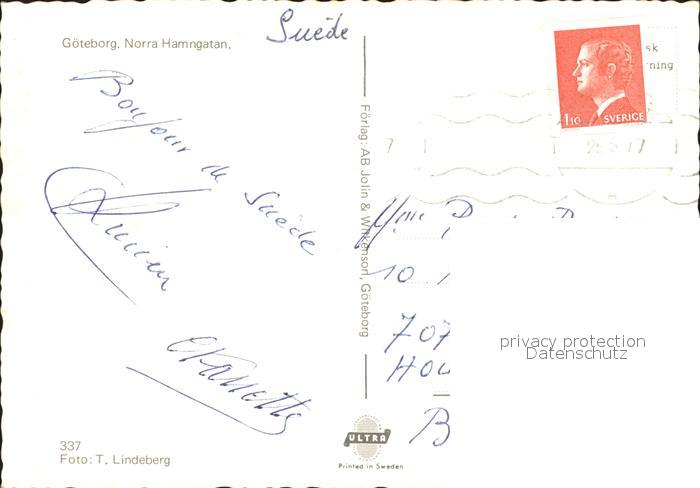 Göteborg, Norra Hamngatan.
Suède
Bonjour de Suède
337
Foto: T. Lindeberg
Förlag: AB Jolin & Wilkenson, Göteborg
ULTRA
Printed in Sweden
sk
rning
1.10 SVERIGE
7
77
Mme
10
707
HOU
B
privacy protection
Datenschutz